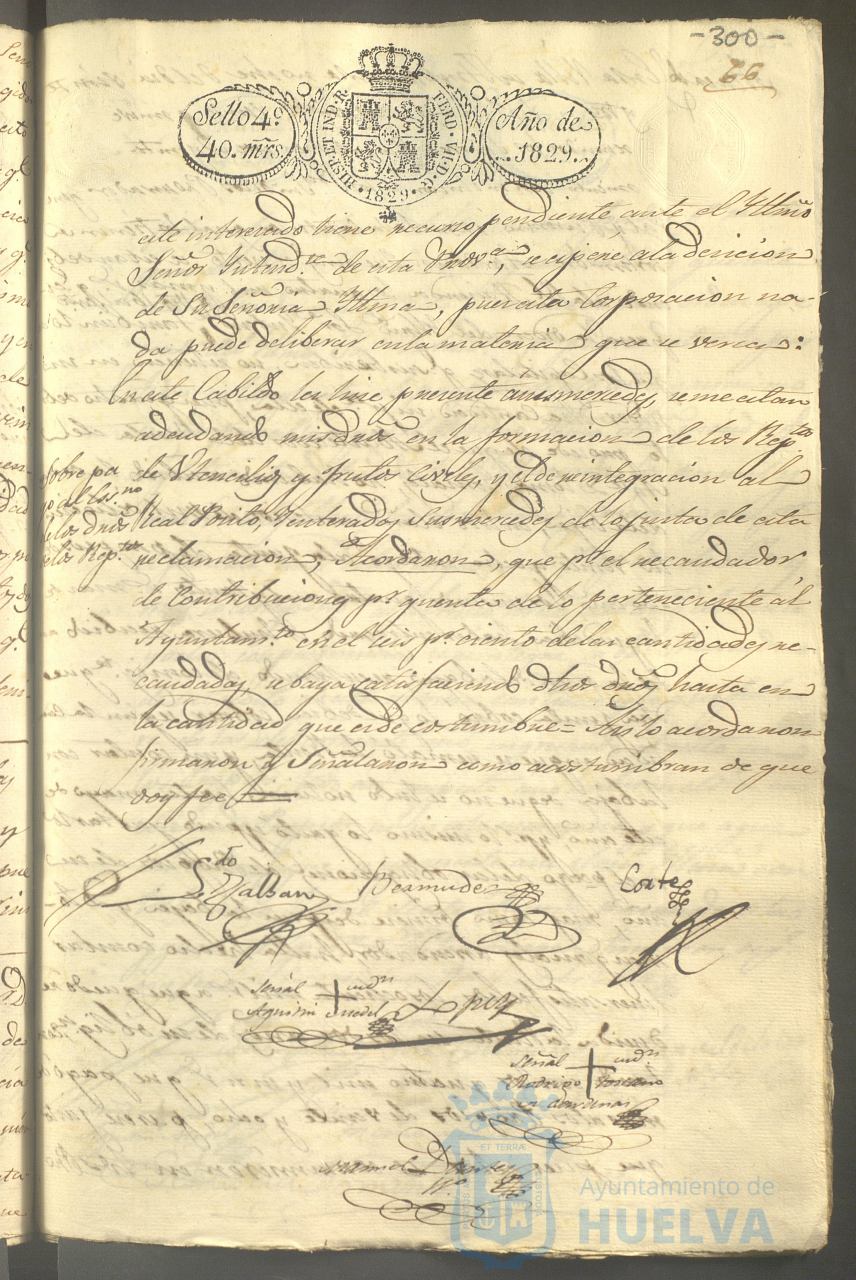 -300-
66
Sello 4º
40. mrs.
HISP. ET IND. R. FERD. VII. D. G.
·1829·
Año de
1829.
este interesado tiene recurso pendiente ante el Yltmo
Señor Intendte de esta Prova, se espere a la desicion
de Su Señoria Yltma, pues esta Corporacion na-
da puede deliberar en la materia que se versa:
En este Cabildo les hise presente á sus mercedes, se me estan
adeudando mis dros en la formacion de los Reptos
de Utencilios y frutos Civiles, y el de reintegracion al
Real Posito, Y enterados Sus mercedes de lo justo de esta
reclamacion, Acordaron, que pr el recaudador
de Contribuciones pr quenta de lo perteneciente ál
Ayuntamto en el seis pr ciento de las cantidades re-
caudadas, se baya satisfaciendo dhos dros hasta en
la cantidad que es de costumbre = Asi lo acordaron
firmaron y Señalaron como acostumbran de que
doy fee
Sobre pa
go al Essno
de los dros
de los Reptos
Galban
Bermudez
Corte
Señal + de
Agustin
Lopez
Señal + de
Rodrigo
Manuel
ET TERRÆ
Ayuntamiento de
HUELVA